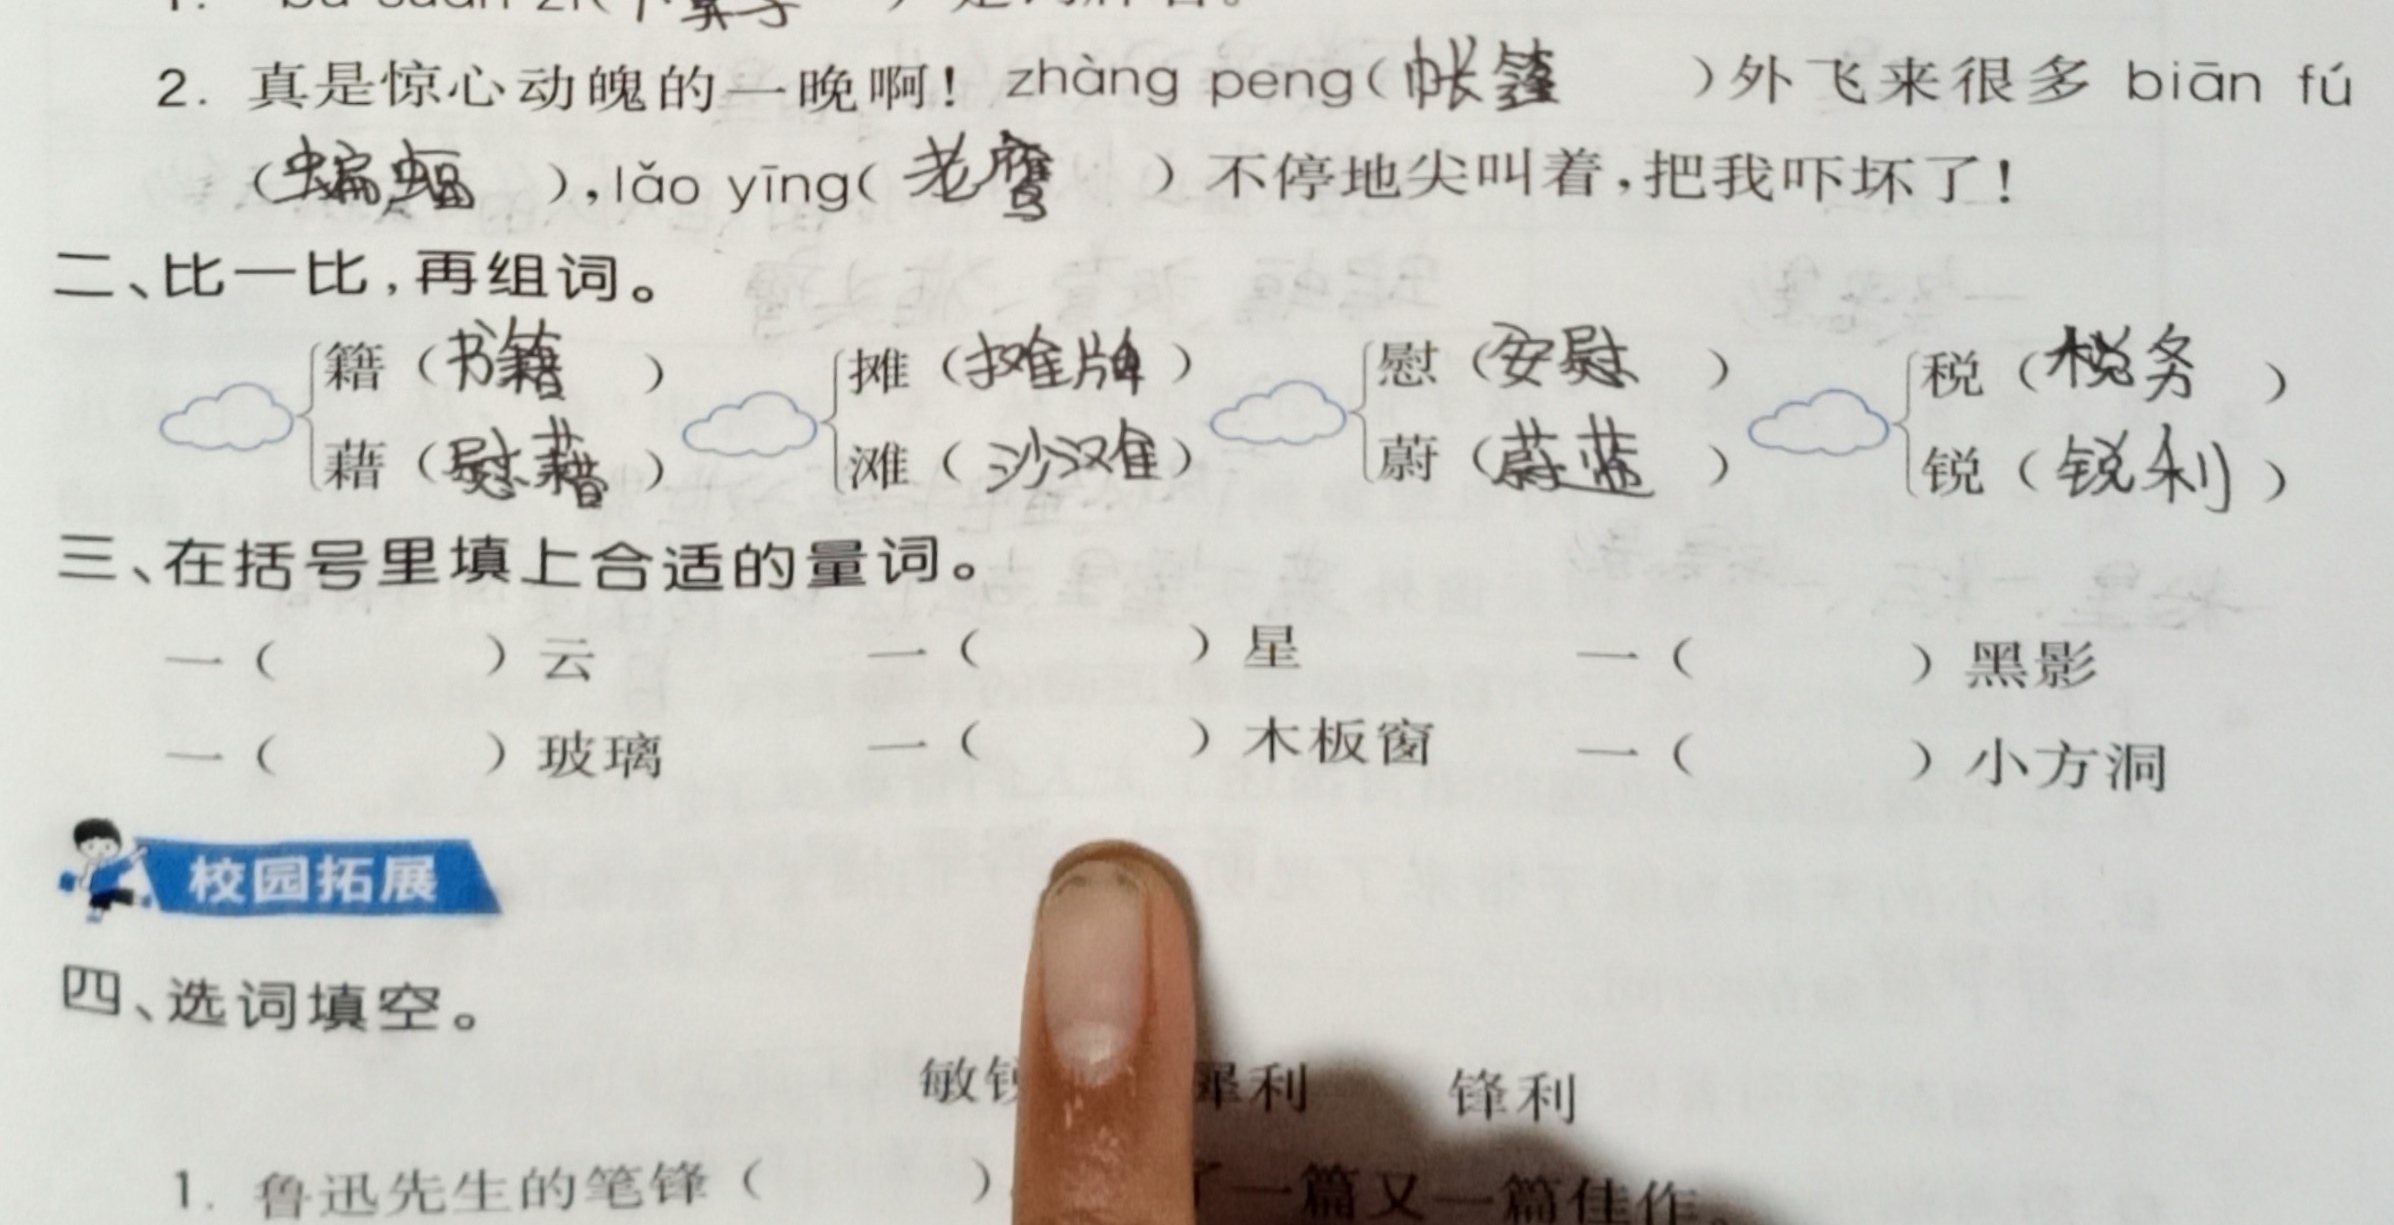 2. 真是惊心动魄的一晚啊！zhàng peng(帐篷)外飞来很多 biān fú
(蝙蝠),lǎo yīng(老鹰)不停地尖叫着,把我吓坏了！
二、比一比,再组词。
籍（书籍） 摊（摊牌） 慰（安慰） 税（税务）
藉（慰藉） 滩（沙滩） 蔚（蔚蓝） 锐（锐利）
三、在括号里填上合适的量词。
一（ ）云 一（ ）星 一（ ）黑影
一（ ）玻璃 一（ ）木板窗 一（ ）小方洞
校园拓展
四、选词填空。
敏 犀利 锋利
1. 鲁迅先生的笔锋（ ） 了一篇又一篇佳作。